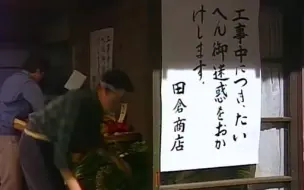 工事中につき、たい
へん御迷惑をおか
けします。
田倉商店